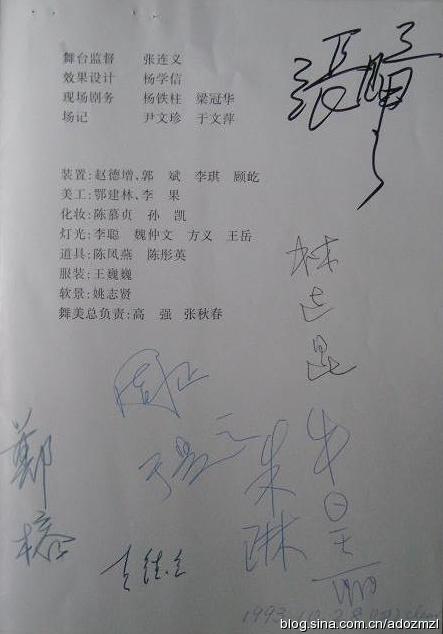 舞台监督 张连义
效果设计 杨学信
现场剧务 杨铁柱 梁冠华
场记 尹文珍 于文萍
装置:赵德增、郭 斌 李琪 顾屹
美工:鄂建林、李 果
化妆:陈慕贞 孙 凯
灯光:李聪 魏仲文 方义 王岳
道具:陈凤燕 陈彤英
服装:王巍巍
软景:姚志贤
舞美总负责:高 强 张秋春
林连昆
鄭榕
朱琳
blog.sina.com.cn/adozmzl